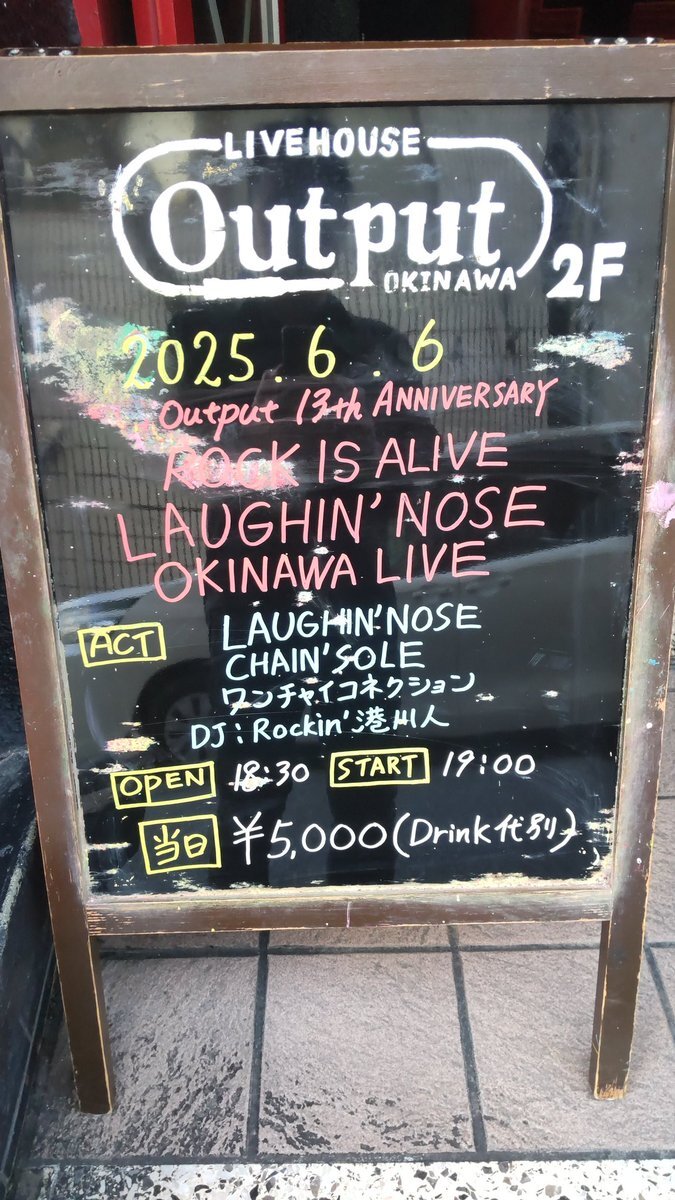 LIVEHOUSE
Output
OKINAWA 2F
2025.6.6
Output 13th ANNIVERSARY
ROCK IS ALIVE
LAUGHIN' NOSE
OKINAWA LIVE
ACT LAUGHIN'NOSE
CHAIN'SOLE
ワンチャイコネクション
DJ:Rockin'港川人
OPEN 18:30 START 19:00
当日 ¥5,000(Drink代別)